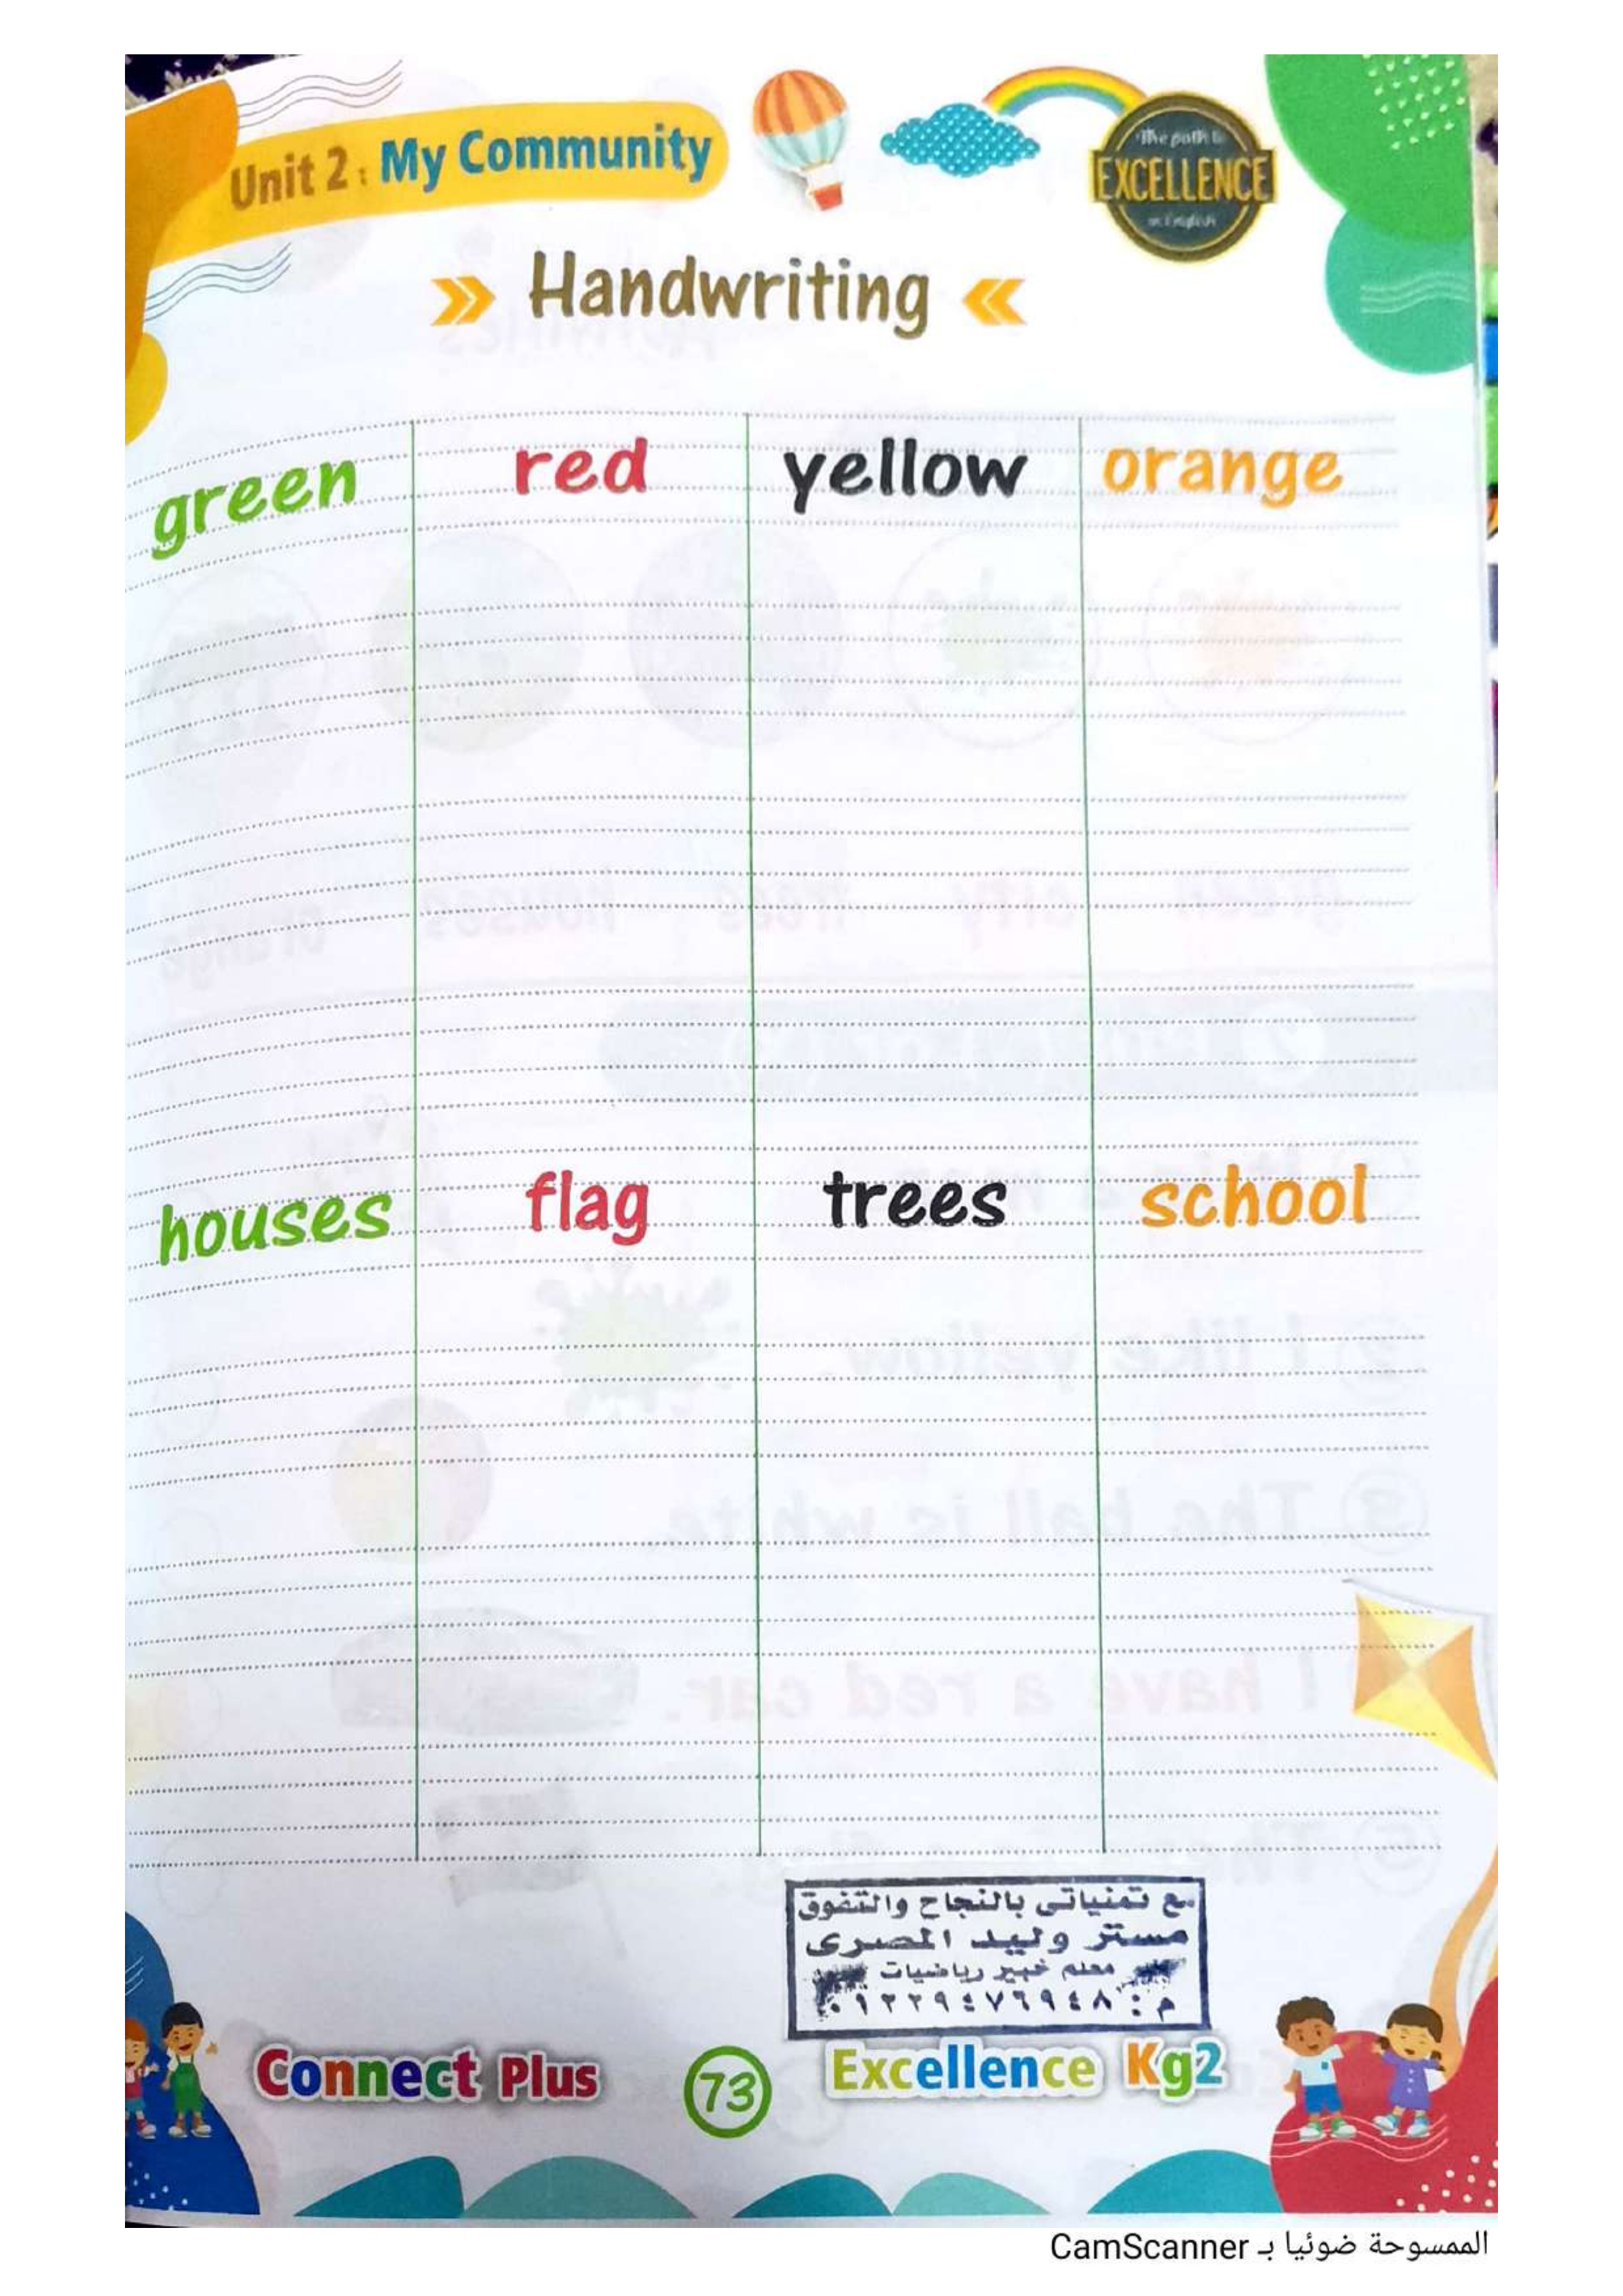 Unit 2 : My Community
The path to
EXCELLENCE
in English
Handwriting
green red yellow orange
houses flag trees school
مع تمنياتى بالنجاح والتفوق
مستر وليد المصرى
معلم خبير رياضيات
م : ٠١٢٢٩٤٧٦٩٤٨
Connect Plus 73 Excellence Kg2
الممسوحة ضوئيا بـ CamScanner